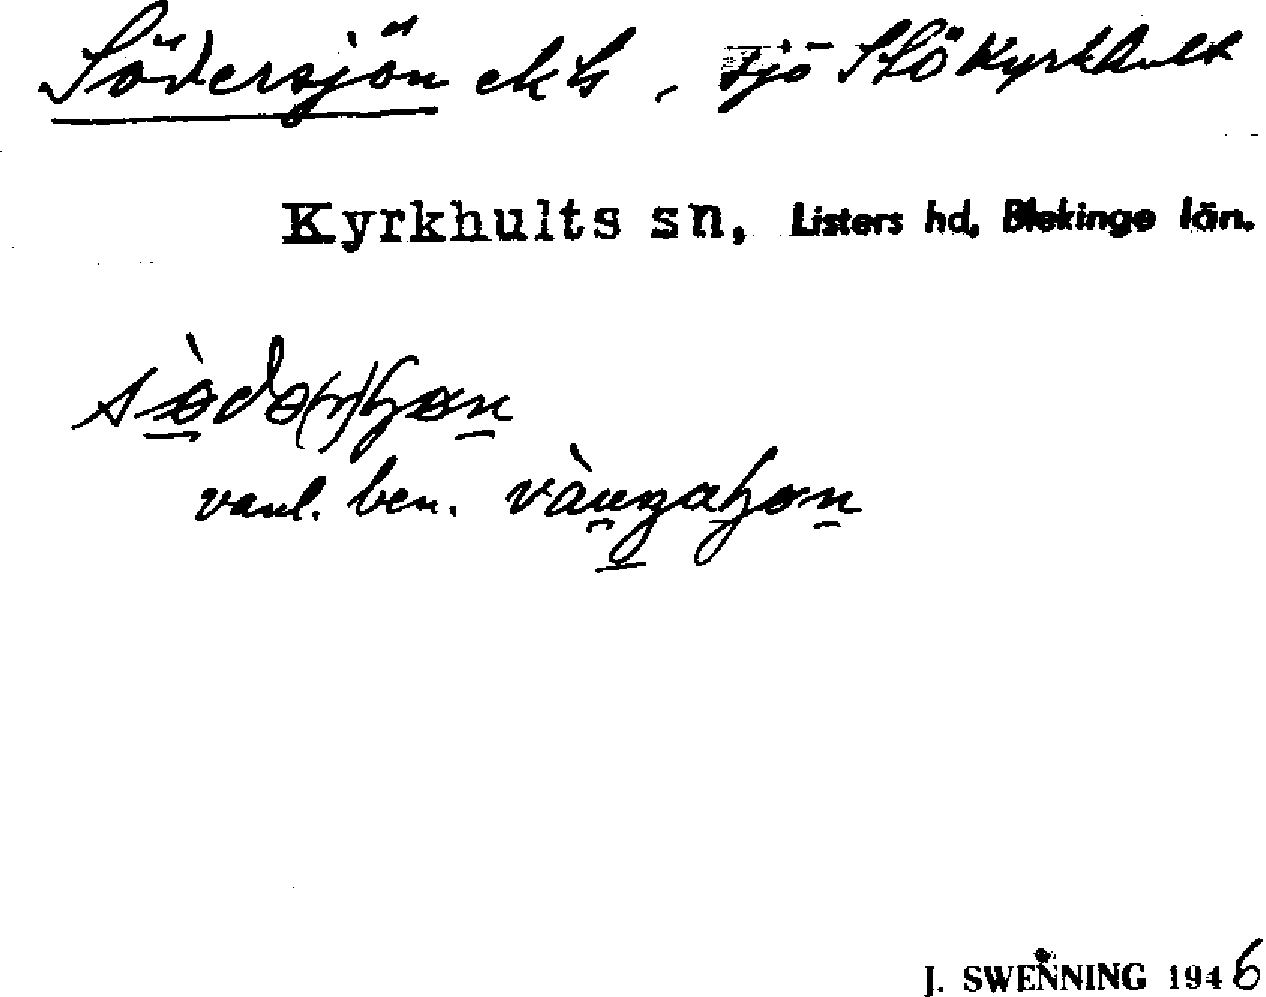 Södersjön ekbl, sjö SSÖ Kyrkhult
Kyrkhults sn, Listers hd, Blekinge län.
södə(r)ɧøn
vanl. ben. vàŋgaɧøn
J. SWENNING 1946